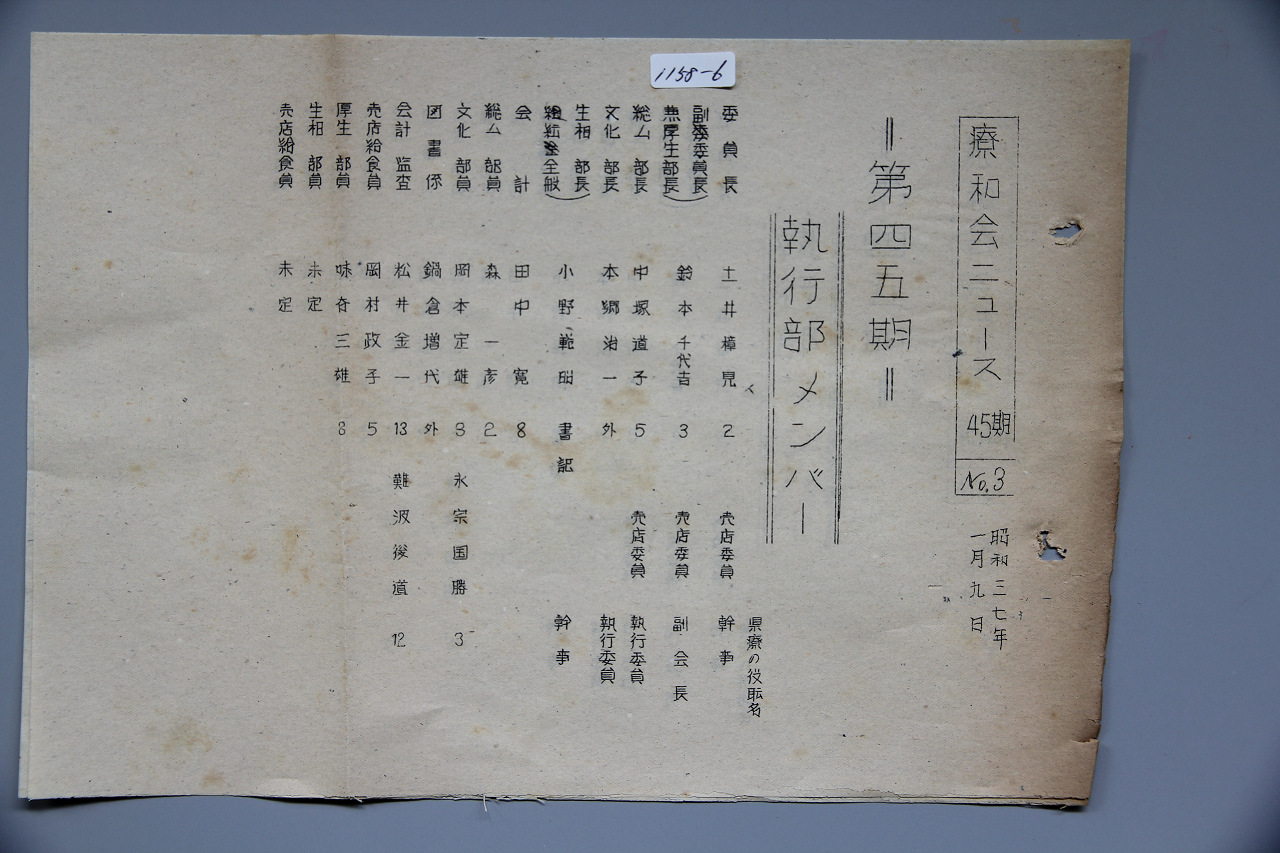 1158-6
療和会ニュース 45期 No.3
昭和三七年
一月九日
=第四五期=
執行部メンバー
県療の役職名
委員長 土井樟見 2 売店委員 幹事
副委員長
(兼厚生部長) 鈴木千代吉 3 売店委員 副会長
総ム部長 中塚道子 5 売店委員 執行委員
文化部長 本郷治一 外 執行委員
生相部長
全般) 小野範昭 書記 幹事
会計 田中寛 8
総ム部員 森一彦 2
文化部員 岡本定雄 3 永宗国勝 3
図書係 鍋倉増代 外
会計監査 松井金一 13 難波後道 12
売店給食員 岡村政子 5
厚生部員 味呑三雄 3
生相部員 未定
売店給食員 未定